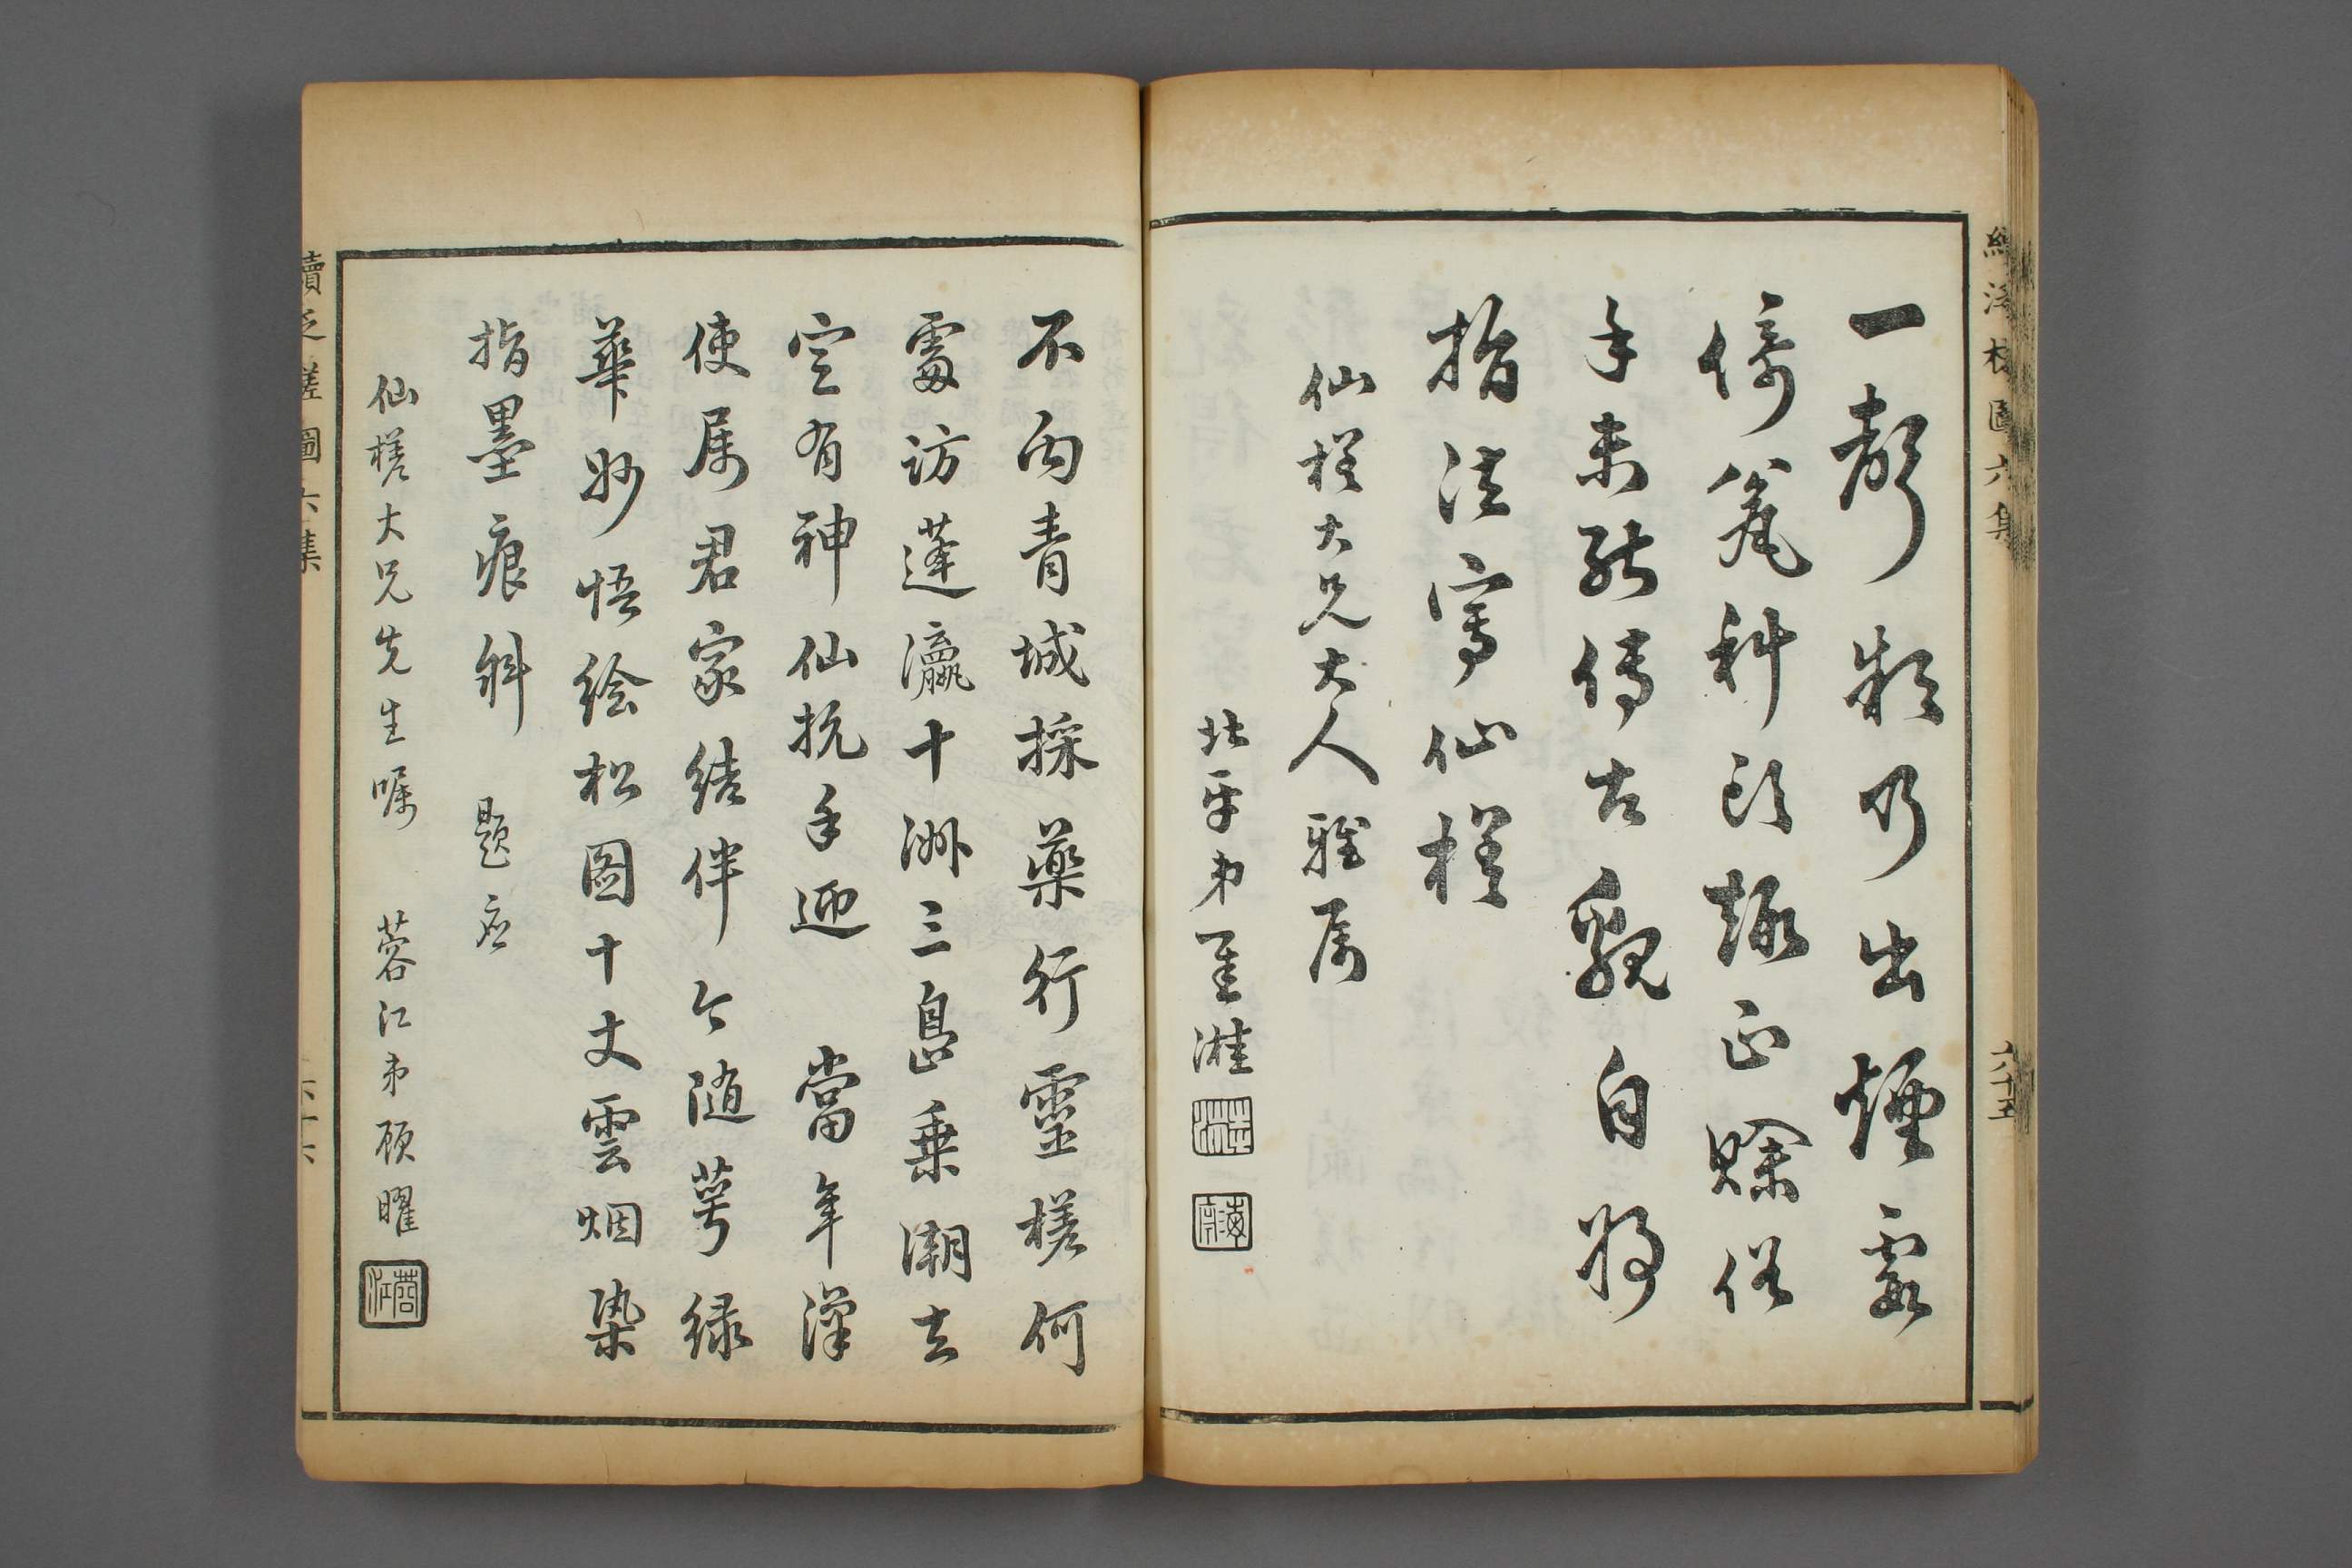 續泛槎圖六集
六十五
一聲欸乃出煙霞
倚篷科頭趣正賒俗
手未能傳古貌自將
指法寫仙槎
仙槎大兄大人雅屬
北平弟
不向青城採藥行靈槎何
處訪蓬瀛十洲三島乘潮去
定有神仙抗手迎 當年漢
使屬君家結伴今隨萼綠
華妙悟绘松圖十丈雲烟染
指墨痕斜 題应
仙槎大兄先生嘱 蓉江弟顾曜
蓉江
續泛槎圖六集
六十六